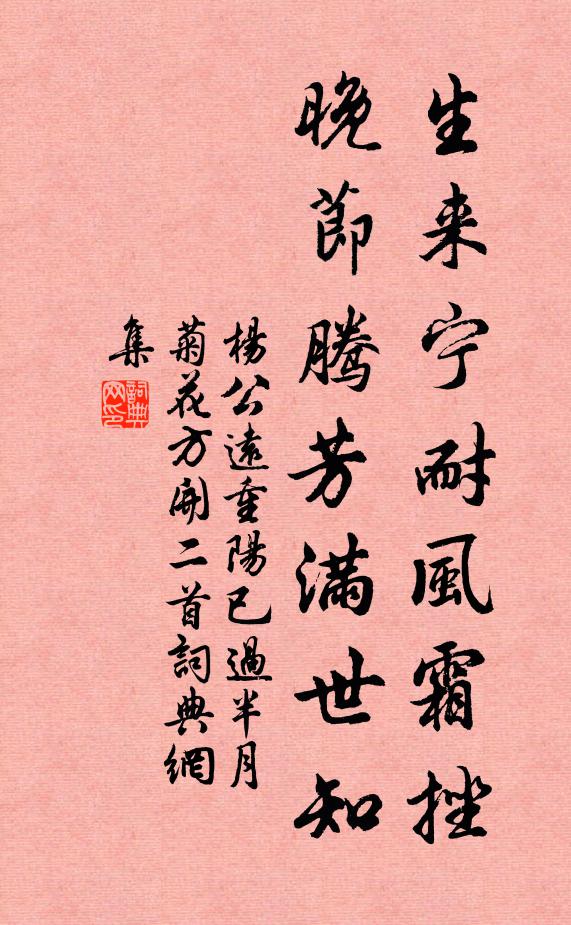 生来宁耐風霜挫
晚節騰芳滿世知
楊公遠重陽已過半月
菊花方開二首詞典網
集
詞典网印